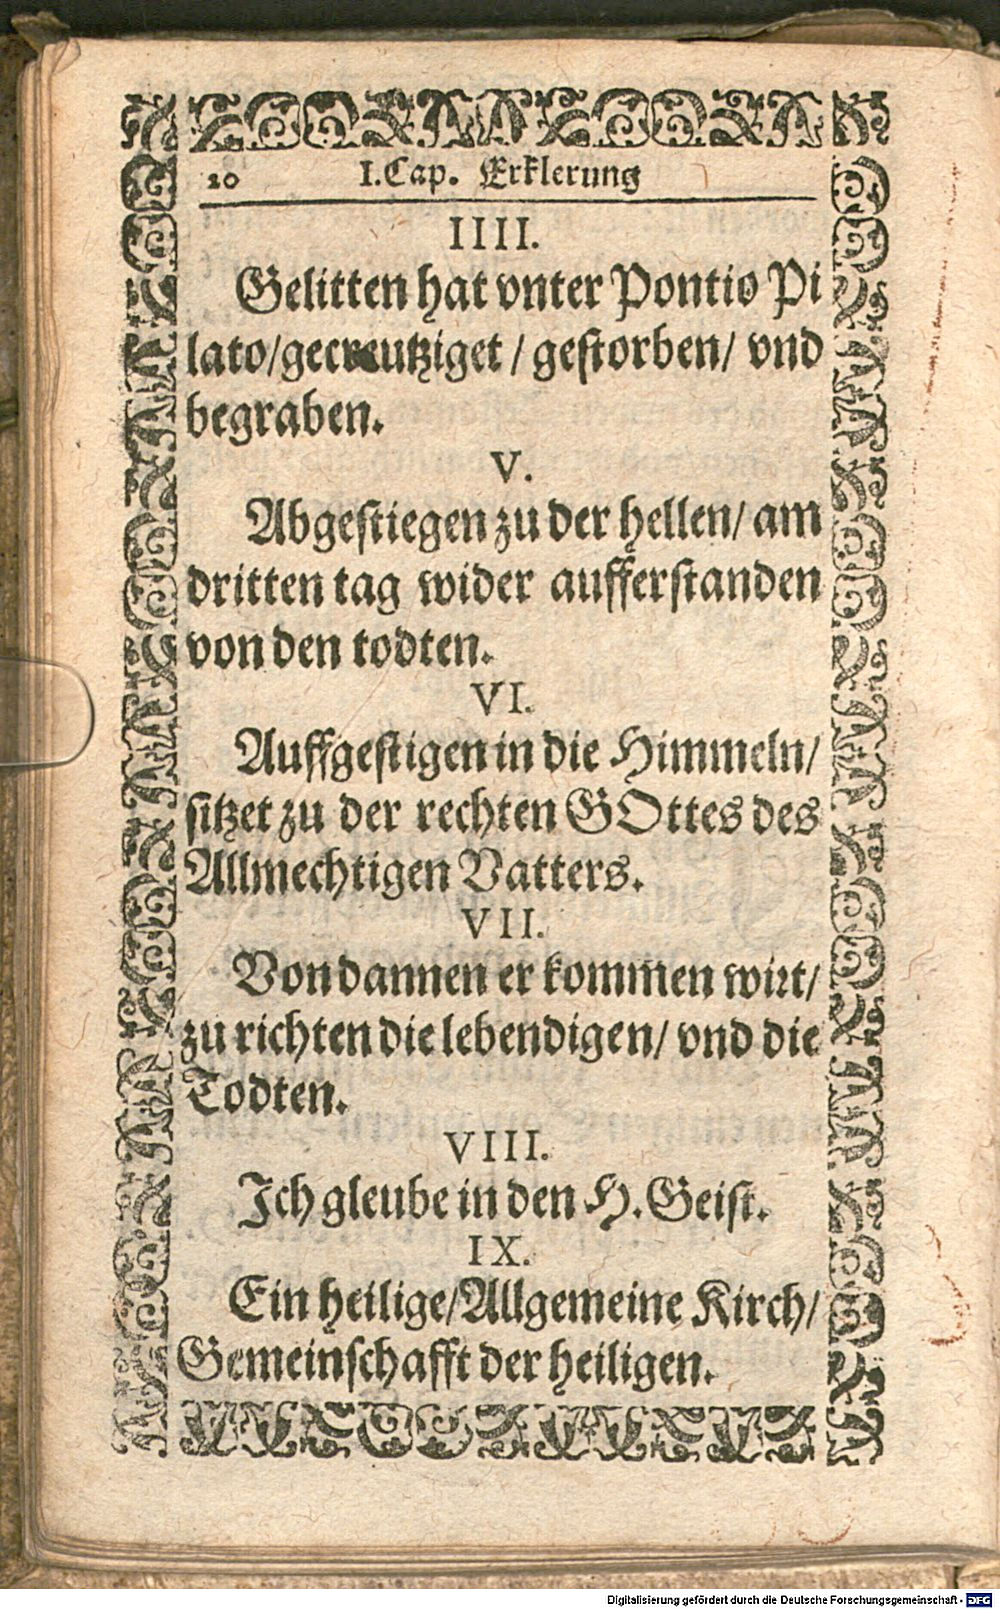 20 I. Cap. Erklerung
IIII.
Gelitten hat vnter Pontio Pi
lato/gecreutziget / gestorben/ vnd
begraben.
V.
Abgestiegen zu der hellen/ am
dritten tag wider aufferstanden
von den todten.
VI.
Auffgestigen in die Himmeln/
sitzet zu der rechten GOttes des
Allmechtigen Vatters.
VII.
Von dannen er kommen wirt/
zu richten die lebendigen/ vnd die
Todten.
VIII.
Ich gleube in den H. Geist.
IX.
Ein heilige/Allgemeine Kirch/
Gemeinschafft der heiligen.
Digitalisierung gefördert durch die Deutsche Forschungsgemeinschaft - DFG